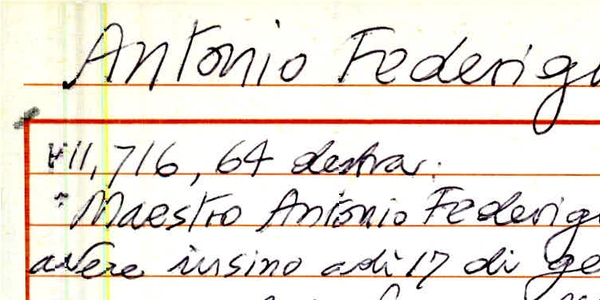 Antonio Federigh
VII, 716, 64 destra.
"Maestro Antonio Federigh
avere insino adì 17 di ge